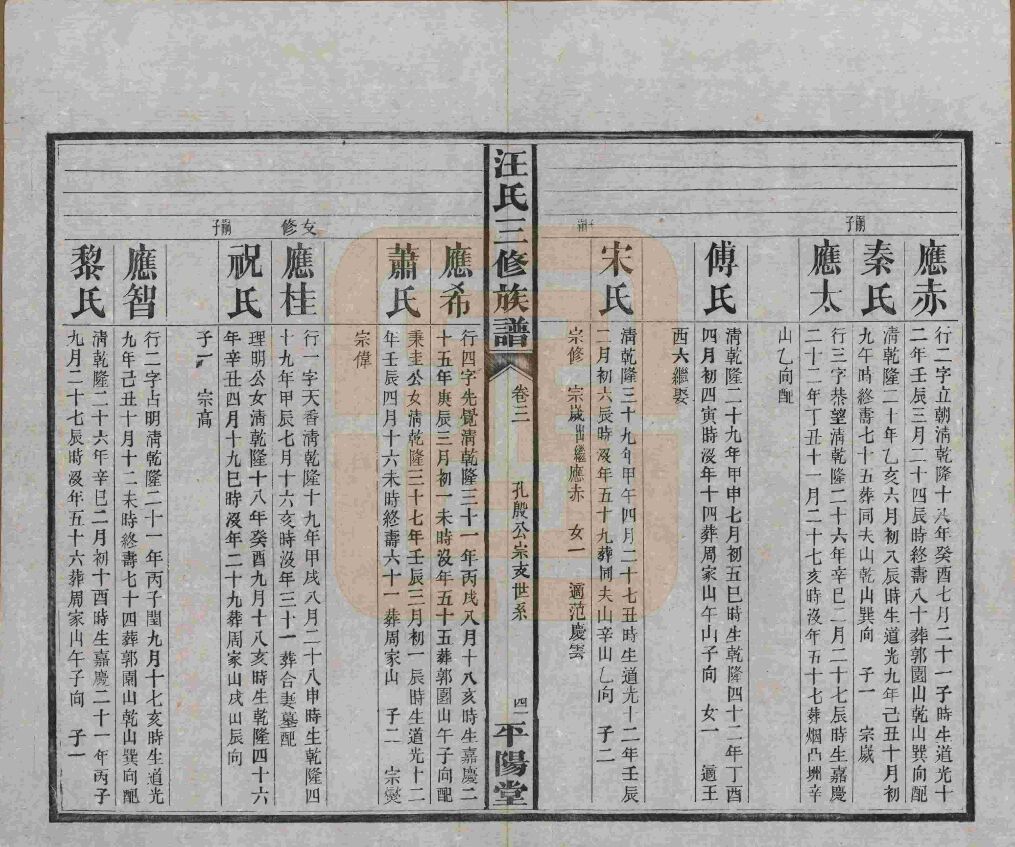 嗣子
應赤
行二字立朝清乾隆十八年癸酉七月二十一子時生道光十
二年壬辰三月二十四辰時終壽八十葬郭園山乾山巽向配
秦氏
清乾隆二十年乙亥六月初八辰時生道光九年己丑十月初
九午時終壽七十五葬同夫山乾山巽向 子一 宗歲
應太
行三字恭望清乾隆二十六年辛巳二月二十七辰時生嘉慶
二十二年丁丑十一月二十七亥時沒年五十七葬烟凸坤辛
山乙向配
傅氏
清乾隆二十九年甲申七月初五巳時生乾隆四十二年丁酉
四月初四寅時沒年十四葬周家山午山子向 女一 適王
西六繼娶
宋氏
清乾隆三十九年甲午四月二十七丑時生道光十二年壬辰
二月初六辰時沒年五十九葬同夫山辛山乙向 子二
宗修 宗歲出繼應赤 女一 適范慶雲
汪氏三修族譜
卷三 孔殷公宗支世系
四一
平陽堂
應希
行四字先覺清乾隆三十一年丙戌八月十八亥時生嘉慶二
十五年庚辰三月初一未時沒年五十五葬郭園山午子向配
蕭氏
秉圭公女清乾隆三十七年壬辰三月初一辰時生道光十二
年壬辰四月十六未時終壽六十一葬周家山 子二 宗燮
宗偉
修女
應桂
行一字天香清乾隆十九年甲戌八月二十八申時生乾隆四
十九年甲辰七月十六亥時沒年三十一葬合妻墓配
嗣子
祝氏
理明公女清乾隆十八年癸酉九月十八亥時生乾隆四十六
年辛丑四月十九巳時沒年二十九葬周家山戌山辰向
子一 宗高
應智
行二字占明清乾隆二十一年丙子閏九月十七亥時生道光
九年己丑十月十二未時終壽七十四葬郭園山乾山巽向配
黎氏
清乾隆二十六年辛巳二月初十酉時生嘉慶二十一年丙子
九月二十七辰時沒年五十六葬周家山午子向 子一